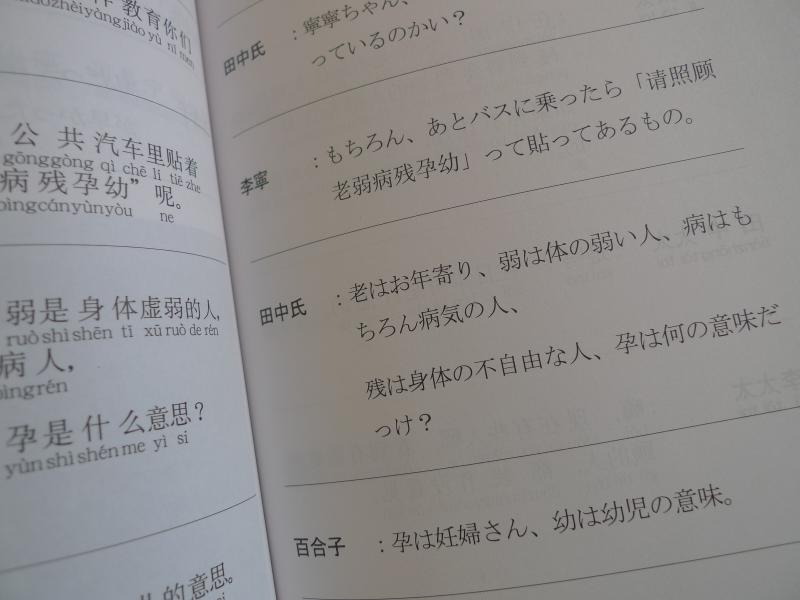 教育你们
zhèiyàng jiào yù nǐ men
公共汽车里贴着
gōnggòng qì chē lǐ tiē zhe
病残孕幼”呢。
bìngcányùnyòu ne
弱是身体虚弱的人,
ruò shì shēn tǐ xū ruò de rén
病人,
bìngrén
孕是什么意思?
yùn shì shén me yì si
的意思。
田中氏 :寧寧ちゃん、
っているのかい?
李寧 :もちろん、あとバスに乗ったら「请照顾
老弱病残孕幼」って貼ってあるもの。
田中氏 :老はお年寄り、弱は体の弱い人、病はも
ちろん病気の人、
残は身体の不自由な人、孕は何の意味だ
っけ?
百合子 :孕は妊婦さん、幼は幼児の意味。